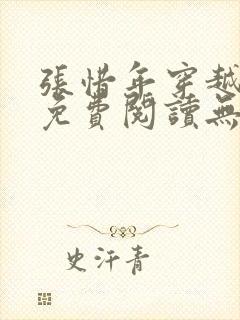 張惜年穿越
免費閱讀無
史汗青